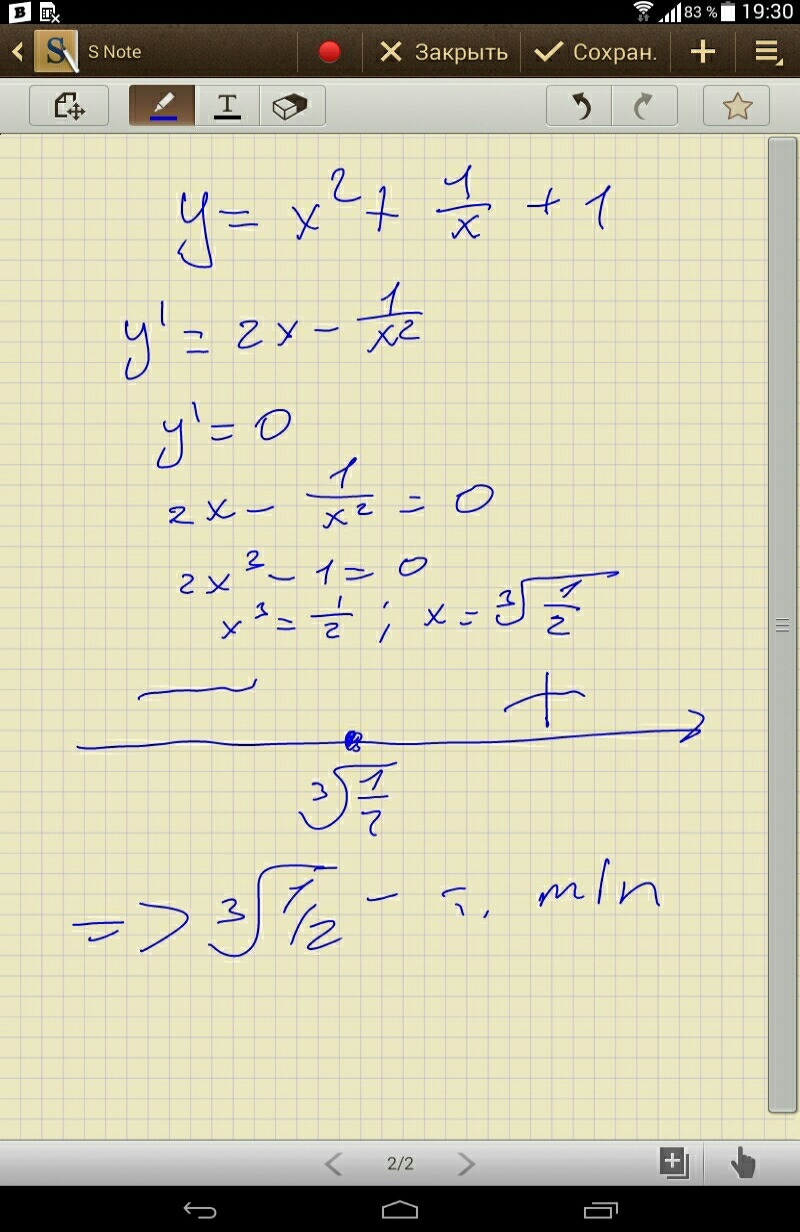 83 % 19:30
S Note Закрыть Сохран.
T
y = x² + 1/x + 1
y' = 2x − 1/x²
y' = 0
2x − 1/x² = 0
2x³ − 1 = 0
x³ = 1/2 ; x = ∛(1/2)
− +
∛(1/2)
=> ∛(1/2) − т. min
2/2